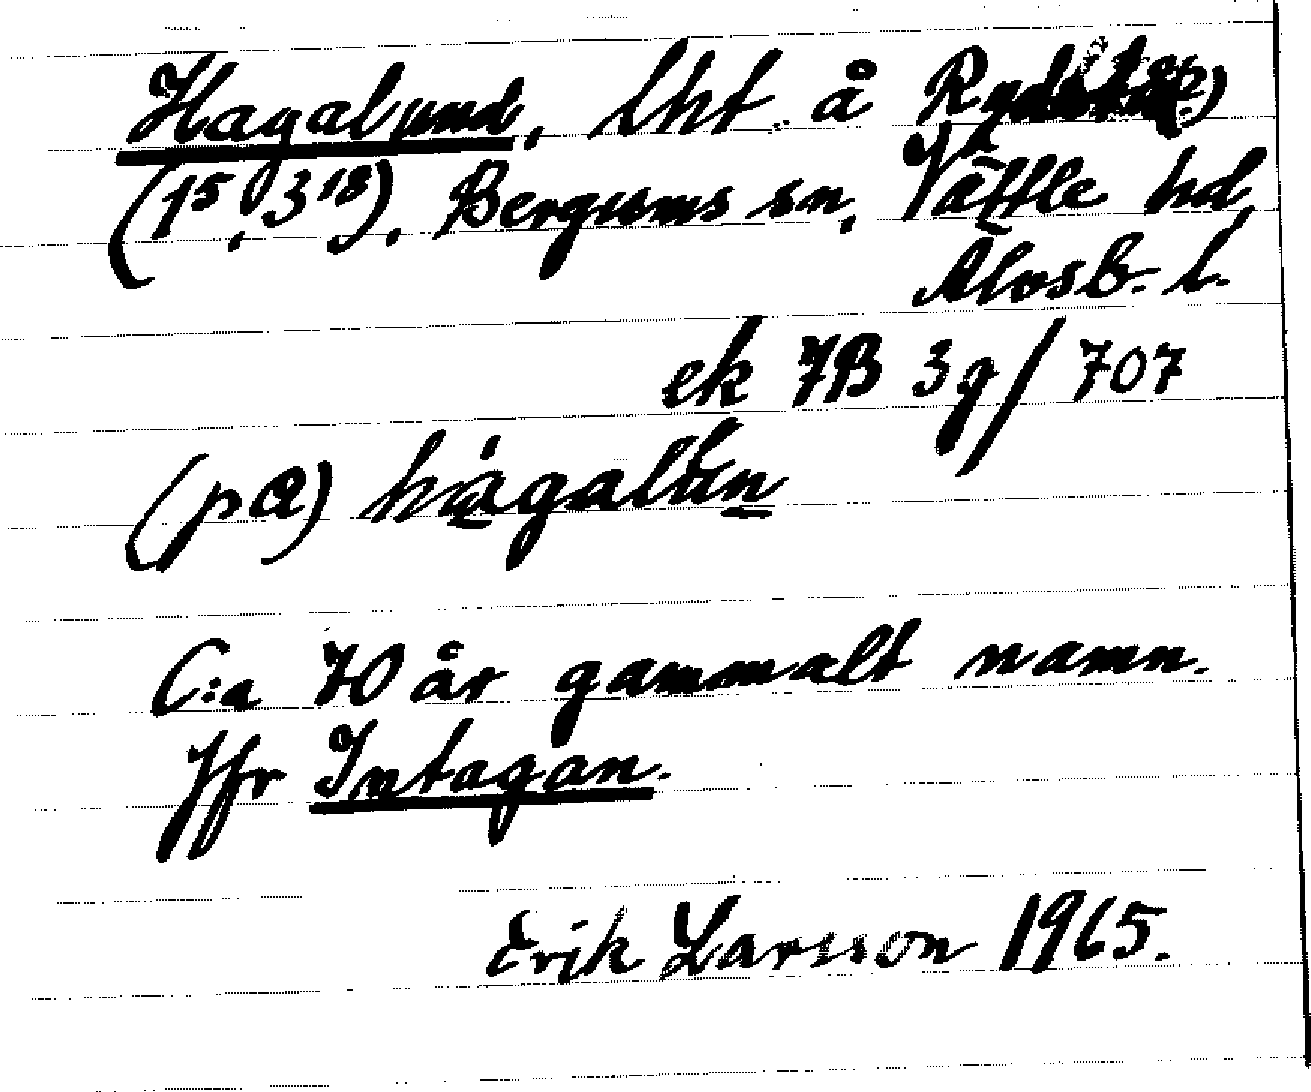 Hagalund, lht. å
(1⁵, 3¹⁸), Bergums sn, Vättle hd,
Älvsb. l.
ek 7B 3g/707
(pa) hàgalùn
C:a 70 år gammalt namn.
Jfr Intagan.
Erik Larsson 1965.